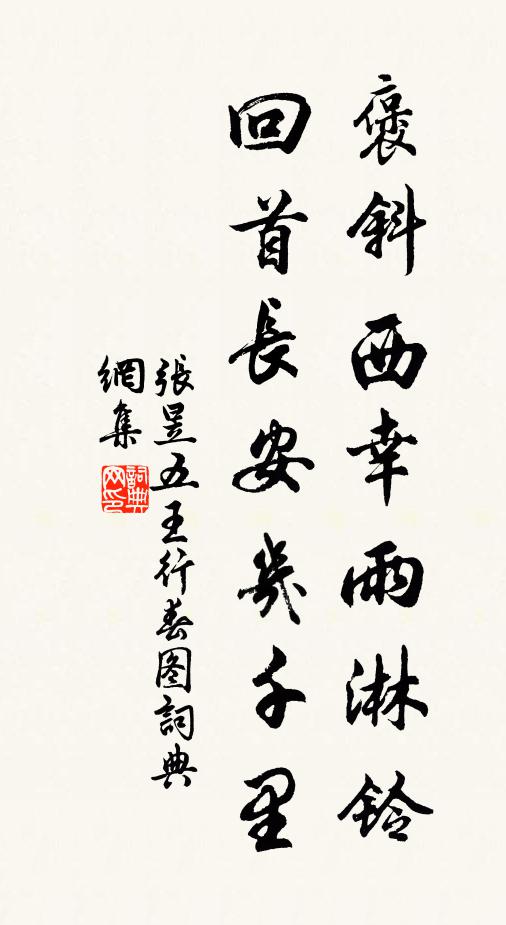 褒斜西幸雨淋鈴
回首長安幾千里
張昱五王行春图詞典
網集
詞典
网印